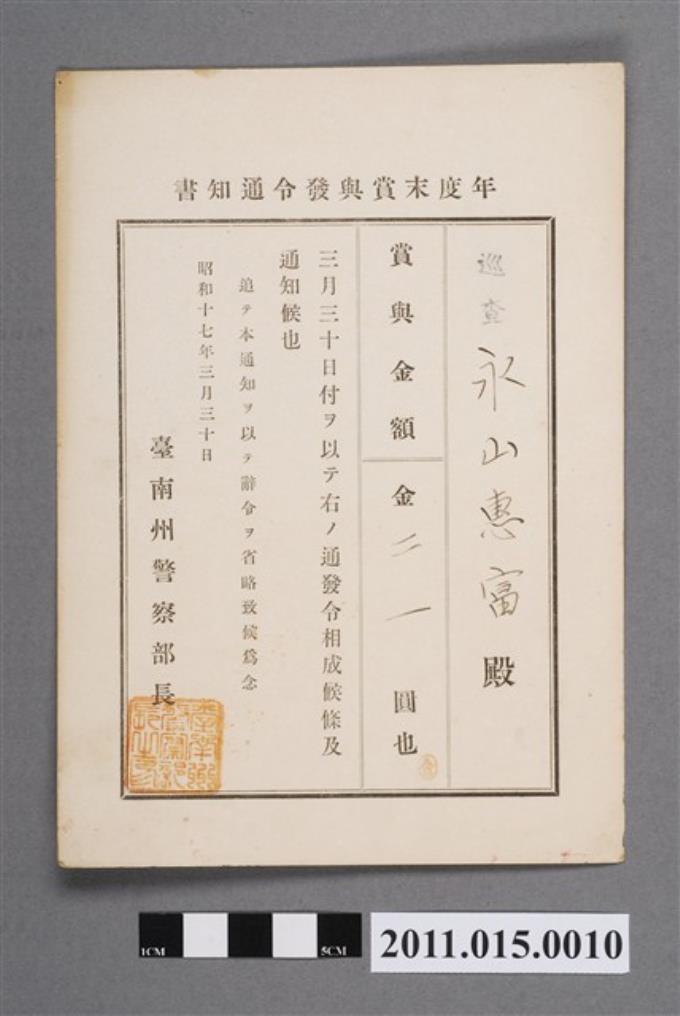 年度末賞與發令通知書
巡査 永山惠富 殿
賞與金額 金二一圓也
三月三十日付ヲ以テ右ノ通發令相成候條及
通知候也
追テ本通知ヲ以テ辭令ヲ省略致候爲念
昭和十七年三月三十日
臺南州警察部長
1CM 5CM
2011.015.0010